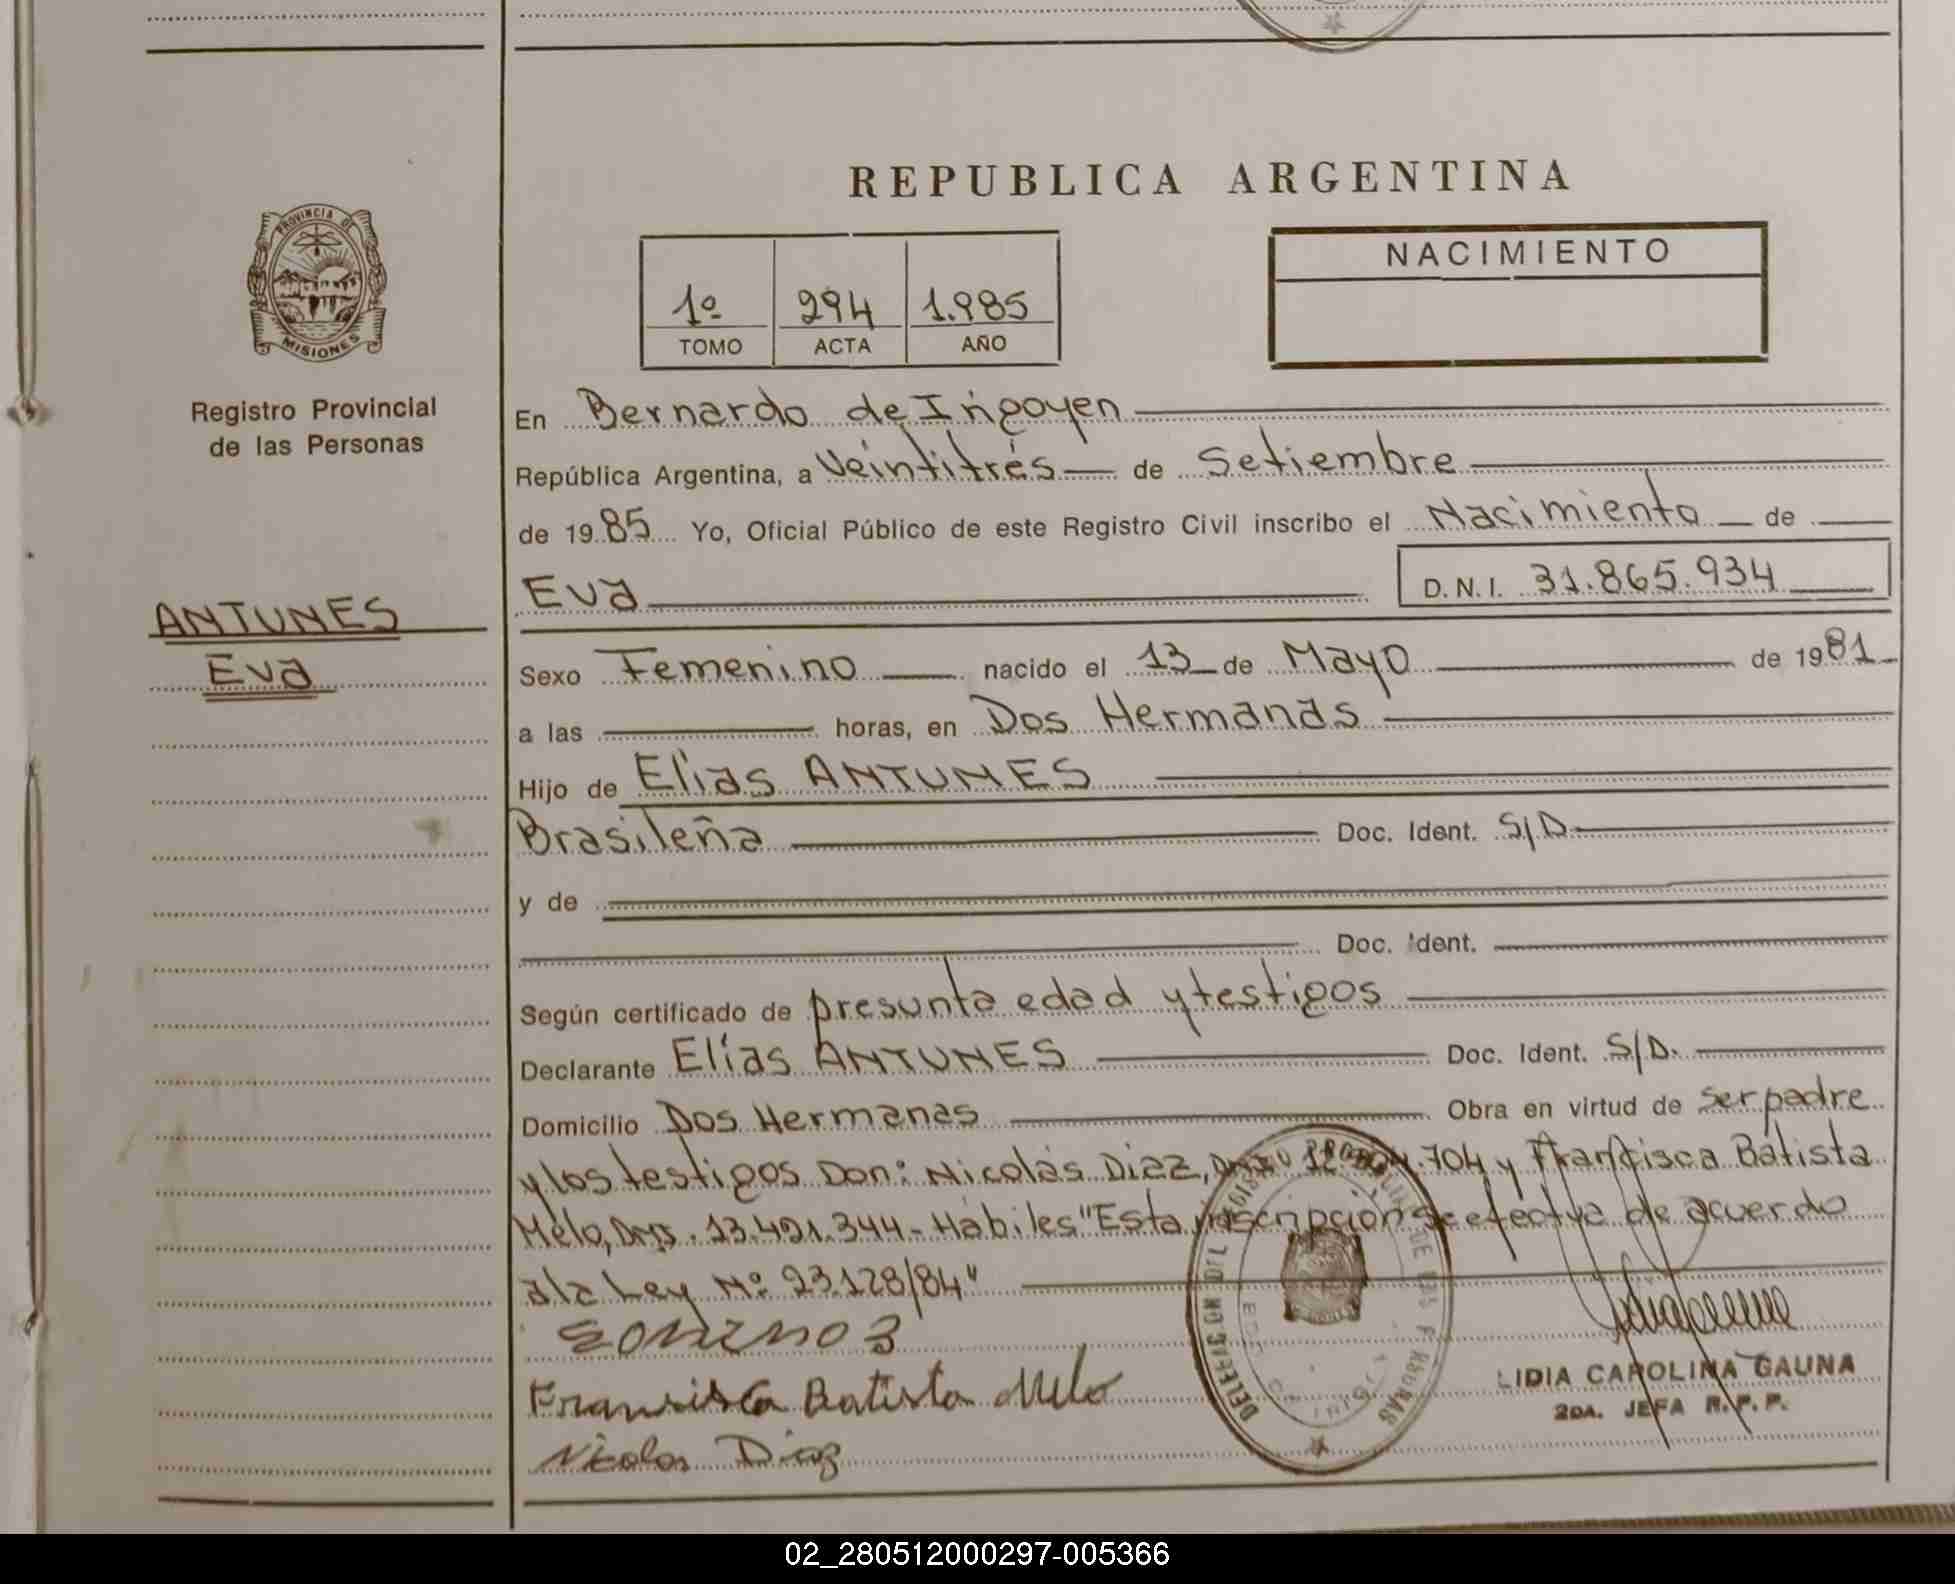 REPUBLICA ARGENTINA
PROVINCIA DE
MISIONES
Registro Provincial
de las Personas
ANTUNES
Eva
1º 294 1.985
TOMO ACTA AÑO
NACIMIENTO
En Bernardo de Irigoyen
República Argentina, a Veintitrés de Setiembre
de 1985 Yo, Oficial Público de este Registro Civil inscribo el Nacimiento de
Eva D.N.I. 31.865.934
Sexo Femenino nacido el 13 de Mayo de 1981
a las horas, en Dos Hermanas
Hijo de Elias ANTUNES
Brasileña Doc. Ident. S/D
y de
Doc. Ident.
Según certificado de presunta edad y testigos
Declarante Elías ANTUNES Doc. Ident. S/D.
Domicilio Dos Hermanas Obra en virtud de ser padre
y los testigos Don: Nicolás Diaz, .704 y Francisca Batista
Melo, 13.491.344 - Hábiles "Esta inscripción se efectua de acuerdo
a la Ley Nº 23.128/84"
Francisca Batista Melo
Nicolas Diaz
DELEGACION DEL REGISTRO PROVINCIAL DE LAS PERSONAS
LIDIA CAROLINA GAUNA
2DA. JEFA R.P.P.
02_280512000297-005366